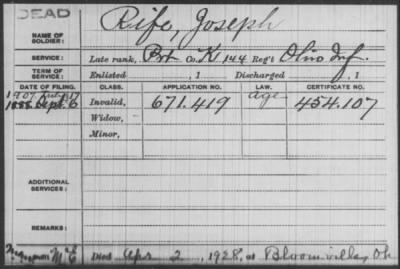 DEAD
NAME OF SOLDIER: Rife, Joseph
SERVICE: Late rank, Pvt Co. K 144 Reg't Ohio Inf.
TERM OF SERVICE: Enlisted , 1 Discharged , 1
DATE OF FILING. CLASS. APPLICATION NO. LAW. CERTIFICATE NO.
1907 July 17 age
1888 Sept. 6 Invalid, 671.419 454.107
Widow,
Minor,
ADDITIONAL SERVICES:
REMARKS:
Died Apr 2, 1928, at Bloomville, Oh